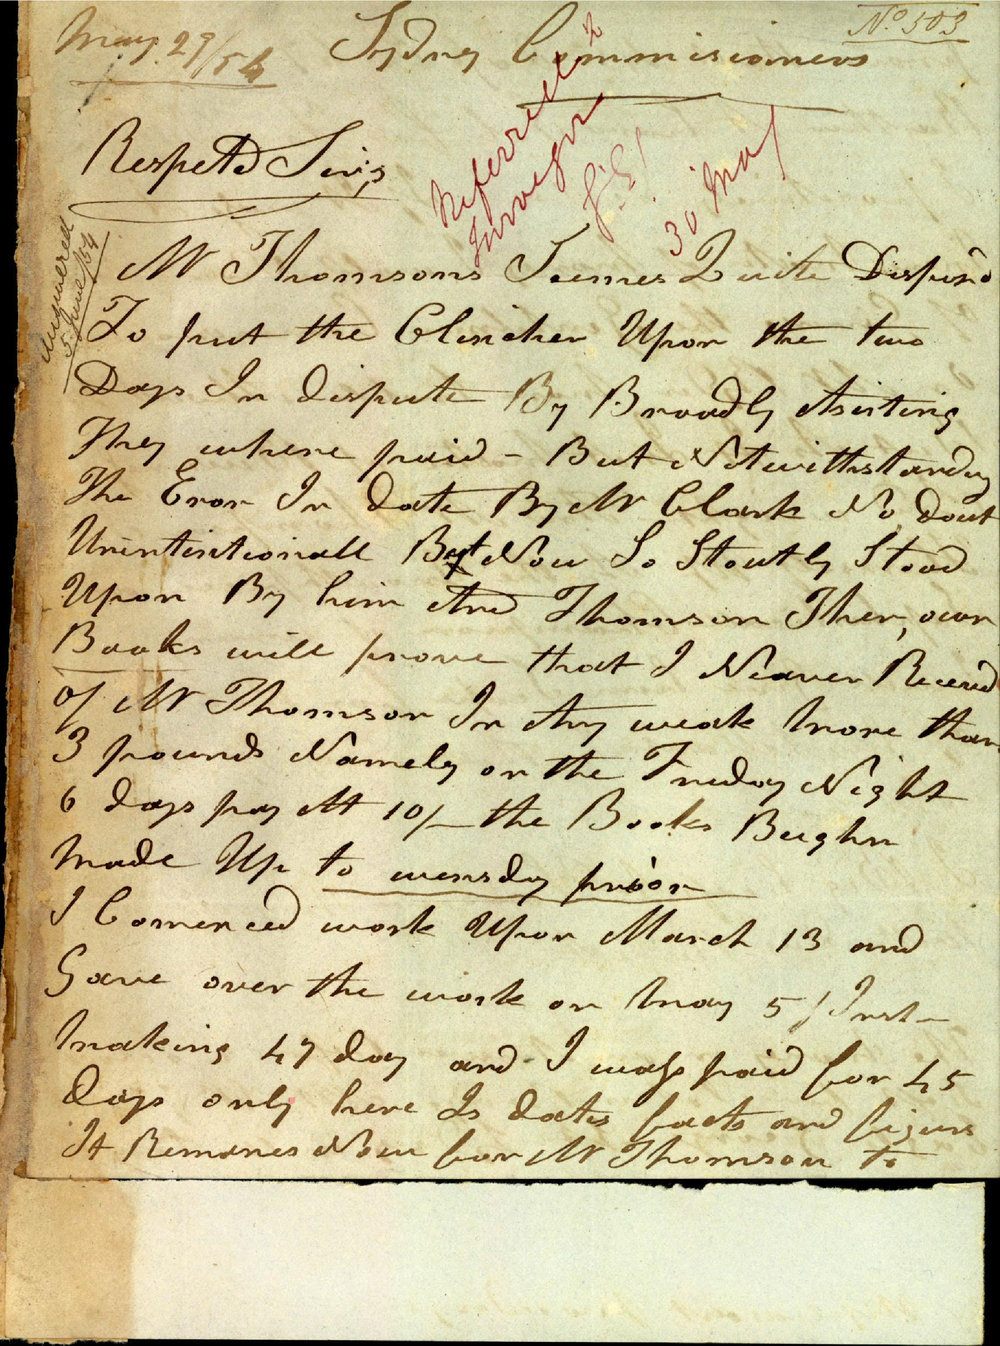 No. 503
May 29/54 Sydney Commisioners
Referred 2
Surveyor
30 May
Respetd Sirs,
Answered
5 June/54
Mr Thomsons Seemes Quite Dispused
To put the Clincher Upon the two
Days In dispute By Broadly Asirting
They where paid - But Notwithstanding
The Eror In date By Mr Clark No dout
Unintintionall But Now So Stoutly Stood
Upon By him And Thomson Ther, own
Books will prove that I Neaver Receved
of Mr Thomson In Any weak more than
3 pounds Namely on the Friday Night
6 days pay At 10/- the Books Beighn
made Up to wensday prior
I Comenced work Upon March 13 and
Gave over the work on May 5/ Inst-
making 47 day and I wass paid for 45
days only here Is dates facts and figurs
It Remanes Now for Mr Thomson to